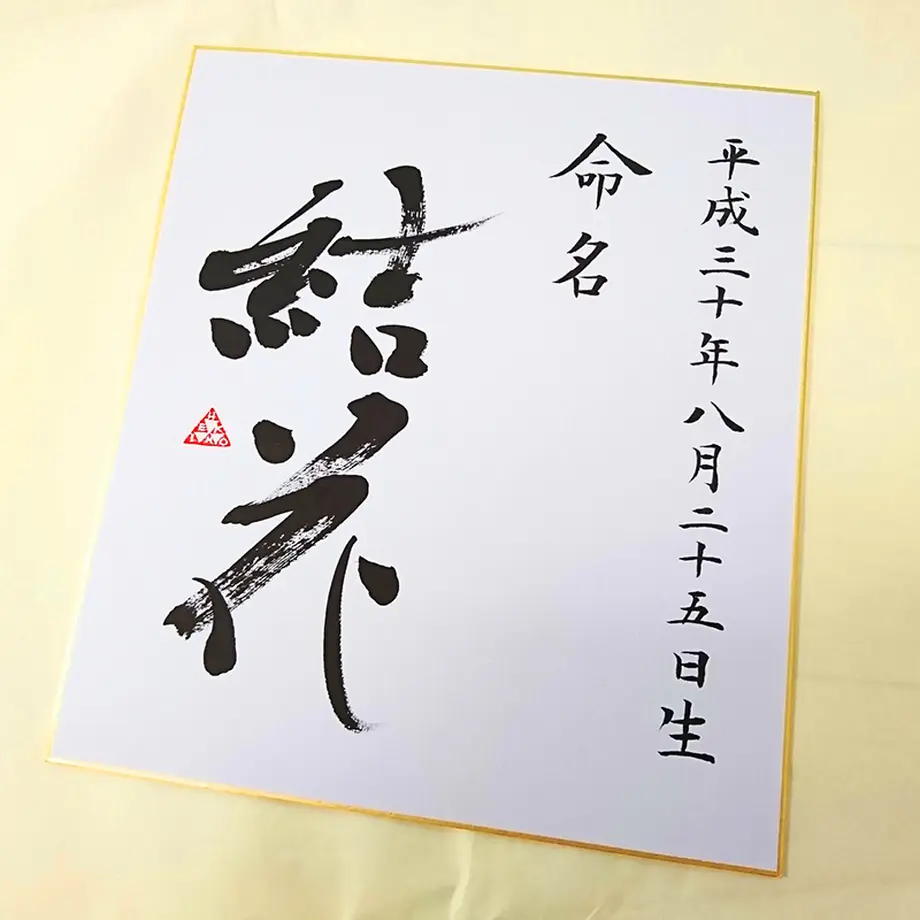 平成三十年八月二十五日生
命名
結花